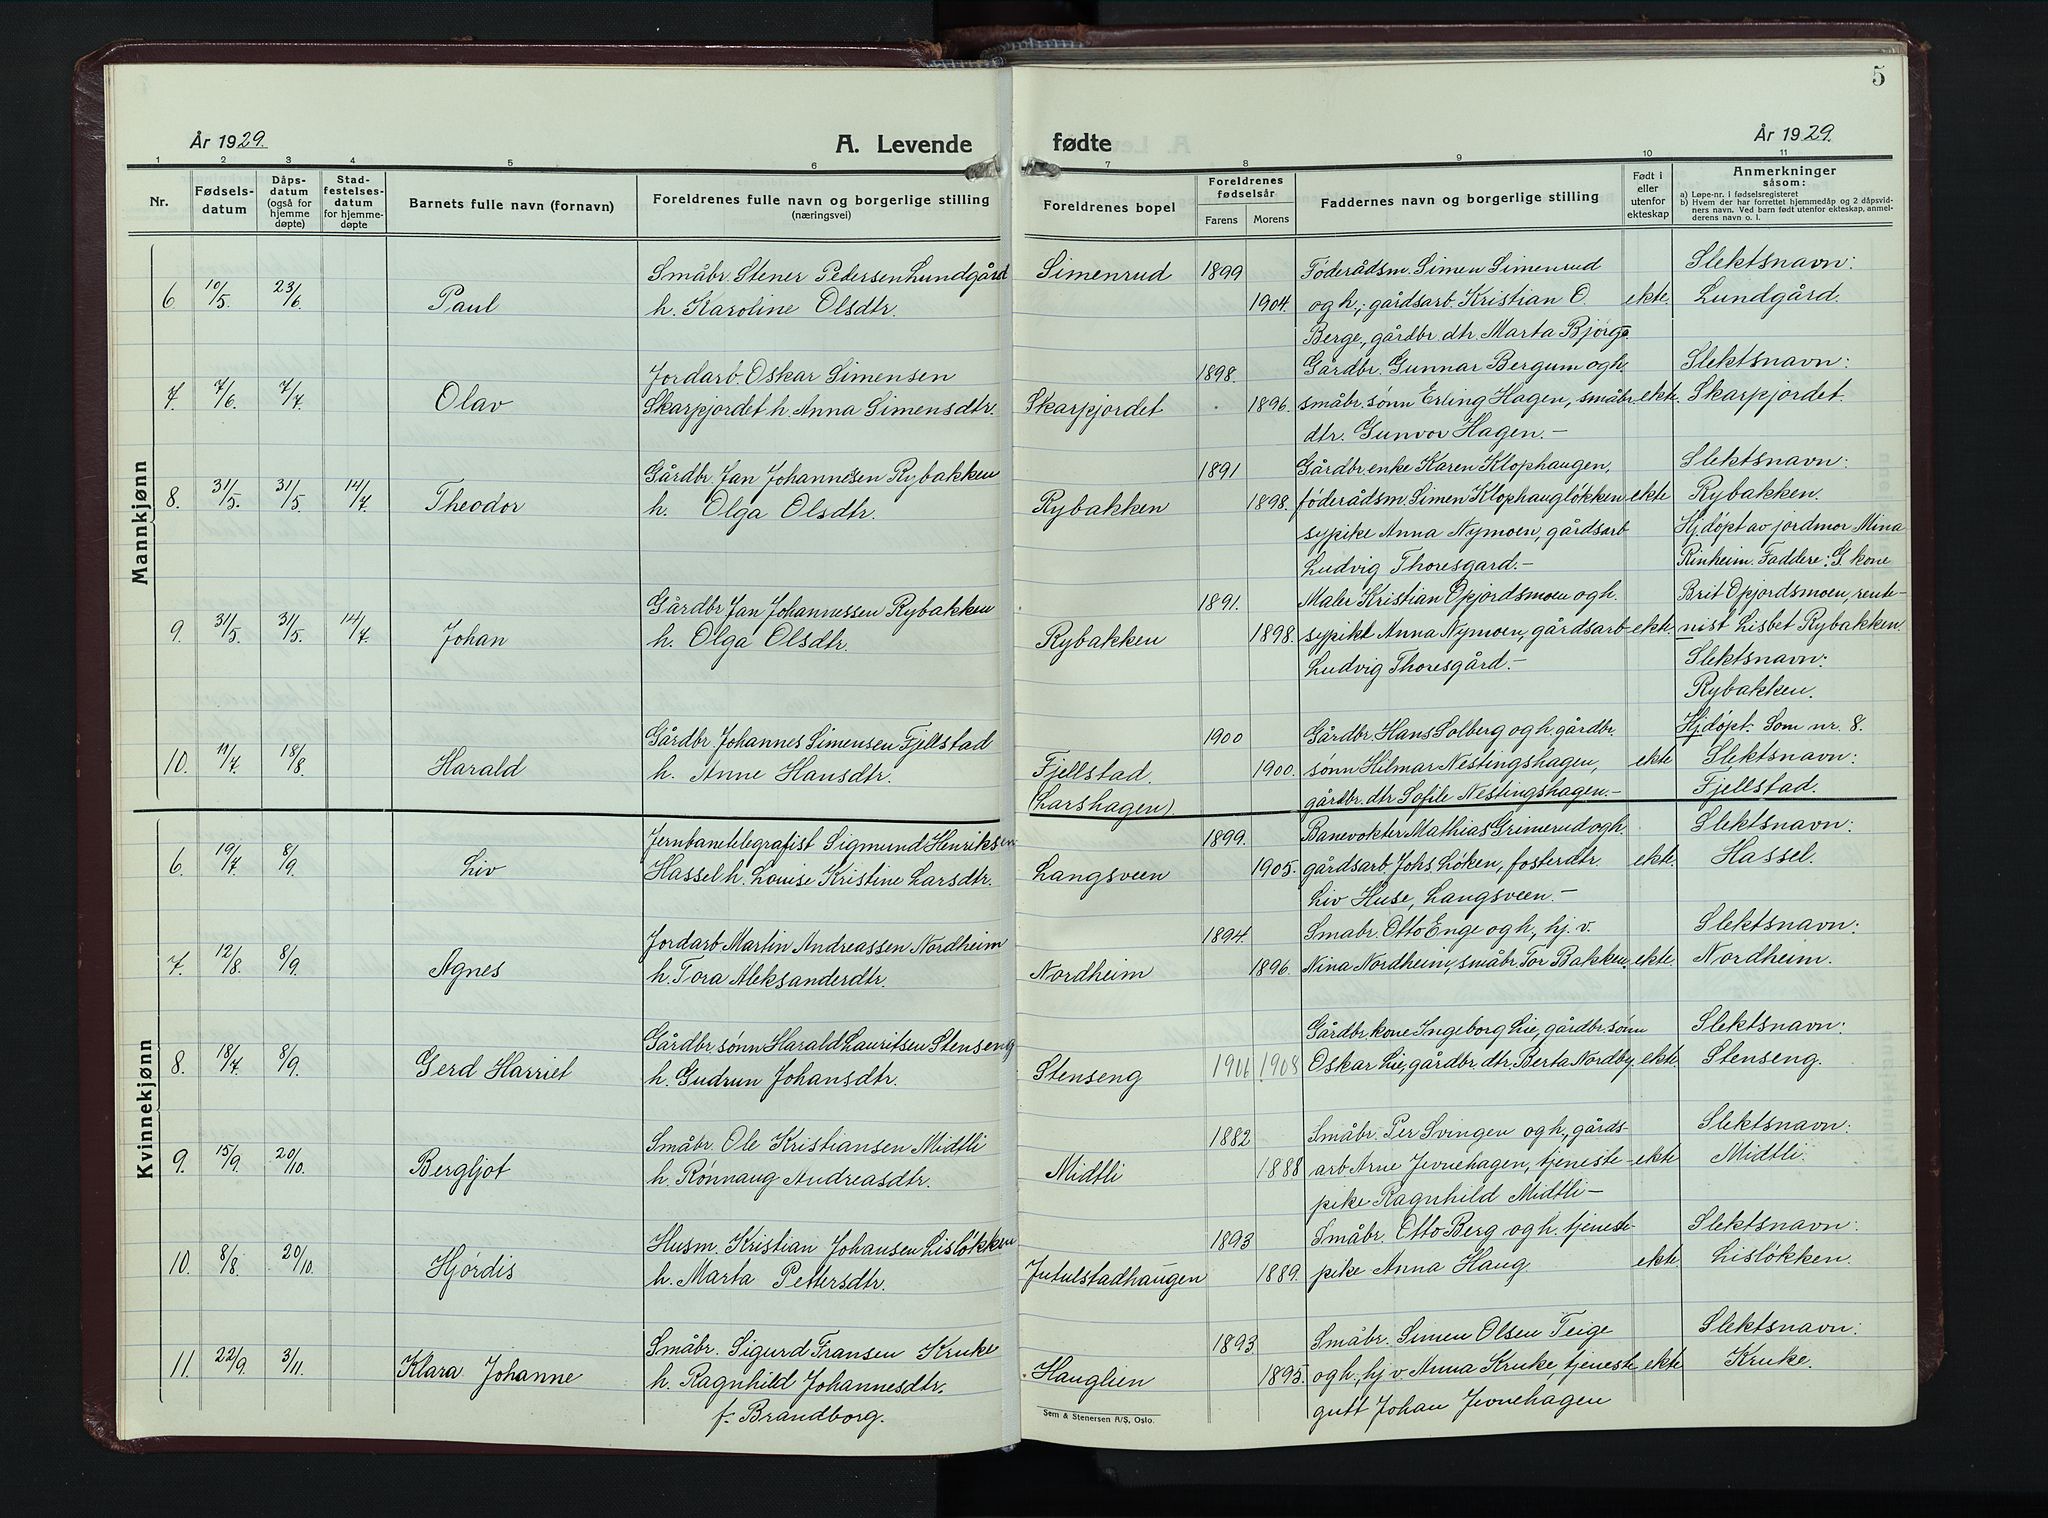 5
År 1929. A. Levende fødte År 1929.
1 2 3 4 5 6 7 8 9 10 11
Nr. Fødselsdatum Dåpsdatum (også for hjemmedøpte) Stadfestelsesdatum for hjemmedøpte Barnets fulle navn (fornavn) Foreldrenes fulle navn og borgerlige stilling (næringsvei) Foreldrenes bopel Foreldrenes fødselsår Farens Morens Faddernes navn og borgerlige stilling Født i eller utenfor ekteskap Anmerkninger såsom:
a) Løpe-nr. i fødselsregisteret
b) Hvem der har forrettet hjemmedåp og 2 dåpsvidners navn. Ved barn født utenfor ekteskap, anmelderens navn o. l.
Mannkjønn
Småbr. Stener Pedersen Lundgård Simenrud 1899 Føderådsm. Simen Simenrud Slektsnavn:
6 10/5. 23/6 Paul h. Karoline Olsdtr. 1904. og h.; gårdsarb. Kristian O. ekte. Lundgård.
Berge, gårdbr. dtr. Marta Bjørge.
Jordarb. Oskar Simensen 1898. Gårdbr. Gunnar Bergum og h. Slektsnavn:
7. 7/6. 7/7. Olav Skarpjordet h. Anna Simensdtr. Skarpjordet 1896. småbr. sønn Erling Hagen, småbr. ekte. Skarpjordet.
dtr. Gunvor Hagen.-
Gårdbr. Jan Johannesen Rybakken 1891 Gårdbr.enke Karen Klophaugen, Slektsnavn:
8. 31/5. 31/5 14/7. Theodor h. Olga Olsdtr. Rybakken 1898. føderådsm. Simen Klophaugløkken ekte Rybakken.
sypike Anna Nymoen, gårdsarb Hj.døpt av jordmor Mina
Ludvig Thoresgard.- Rinheim. Faddere: G. kone
Gårdbr. Jan Johannessen Rybakken 1891. Maler Kristian Opjordsmoen og h. Brit Opjordsmoen, rente-
9. 31/5. 31/5. 14/7. Johan h. Olga Olsdtr. Rybakken 1898. sypike Anna Nymoen, gårdsarb ekte. nist Lisbet Rybakken.
Ludvig Thoresgård.- Slektsnavn:
Rybakken.
Gårdbr. Johannes Simensen Fjellstad 1900 Gårdbr. Hans Solberg og h. gårdbr. Hj.døpt. Som nr. 8.
10. 11/7. 18/8. Harald h. Anne Hansdtr. Fjellstad. 1900. sønn Hilmar Nestingshagen, ekte Slektsnavn:
(Larshagen) gårdbr. dtr Sofile Nestingshagen.- Fjellstad.
Kvinnekjønn
Jernbanetelegrafist Sigmund Henriksen 1899. Banevokter Mathias Grimerud og h Slektsnavn:
6. 19/7 8/9. Liv Hassel h. Louise Kristine Larsdtr. Langsveen 1905. gårdsarb. Johs. Løken, fosterdtr. ekte. Hassel.
Liv Huse, Langsveen.-
Jordarb Martin Andreassen Nordheim 1894. Småbr. Otto Enge og h, hj. v. Slektsnavn:
7. 12/8. 8/9. Agnes h. Tora Aleksanderdtr. Nordheim 1896. Nina Nordheim, småbr. Tor Bakken. ekte Nordheim.
Gårdbr. sønn Harald Lauritsen Stenseng Gårdbr.kone Ingeborg Lie, gårdbr. sønn Slektsnavn:
8. 18/7. 8/9. Gerd Harriet h. Gudrun Johansdtr. Stenseng 1906 1908 Oskar Lie, gårdbr. dtr. Berta Nordby. ekte. Stenseng.
Småbr. Ole Kristiansen Midtli 1882 Småbr. Per Svingen og h, gårds- Slektsnavn:
9. 15/9. 20/10. Bergljot h. Rønnaug Andreasdtr. Midtli 1888 arb Arne Jevnehagen, tjeneste- ekte Midtli.
pike Ragnhild Midtli-
Husm. Kristian Johansen Lisløkken 1893 Småbr. Otto Berg og h. tjeneste- Slektsnavn:
10. 8/8. 20/10. Hjørdis h. Marta Pettersdtr. Jutulstadhaugen 1889. pike Anna Haug ekte. Lisløkken.
Småbr. Sigurd Fransen Kruke 1893 Småbr. Simen Olsen Teige Slektsnavn:
11. 22/9. 3/11. Klara Johanne h. Ragnhild Johannesdtr. Hauglien 1895. og h, hj. v Anna Kruke, tjeneste ekte Kruke.
f. Brandborg. gutt Johan Jevnehagen
Sem & Stenersen A/S, Oslo.